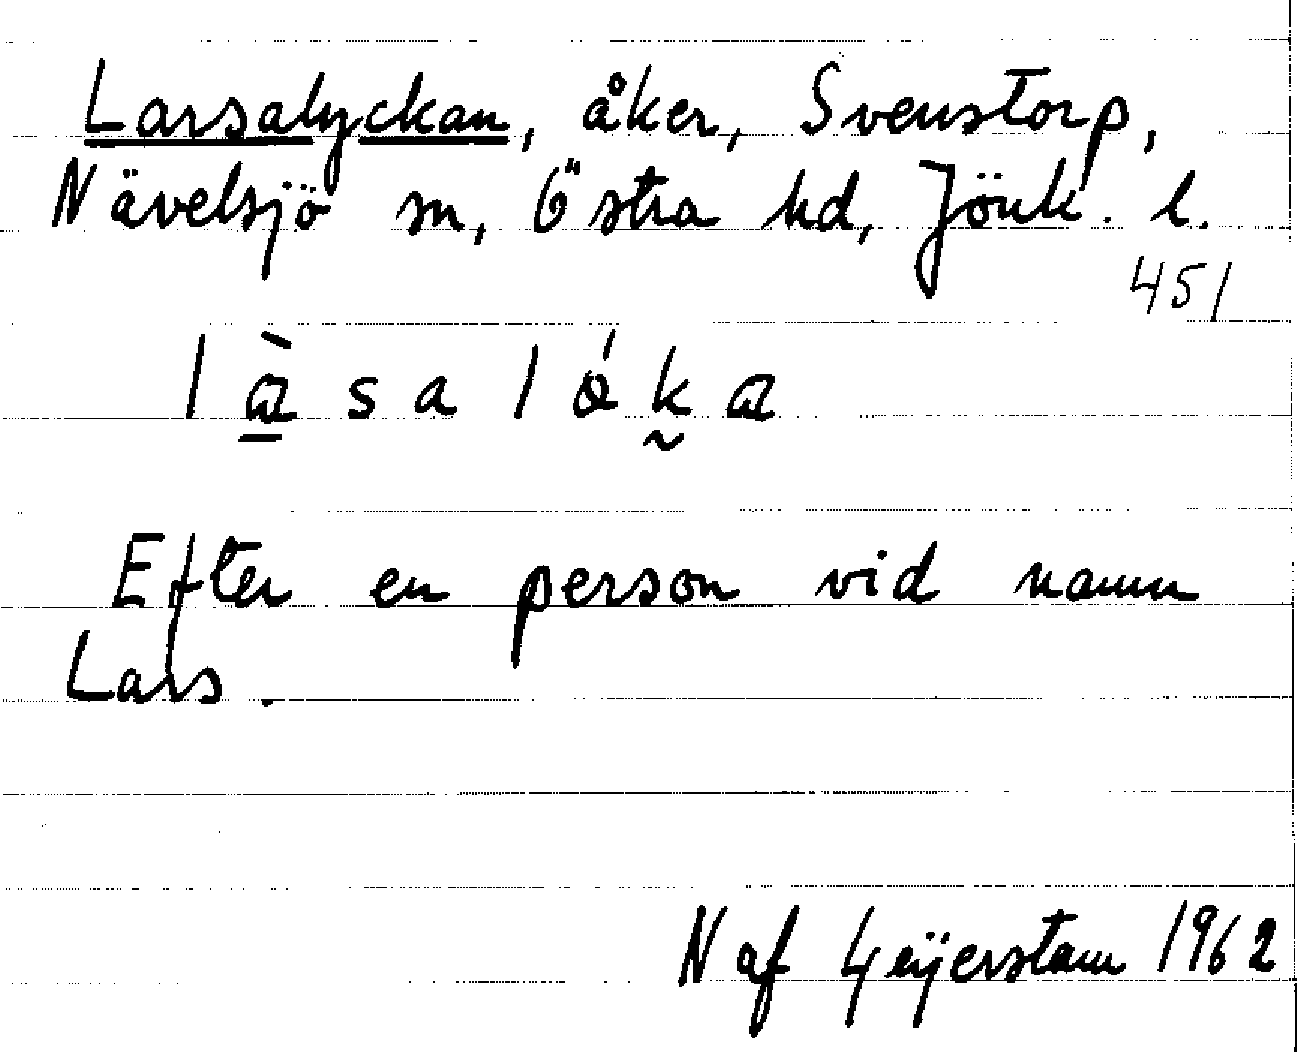 Larsalyckan, åker, Svenstorp,
Nävelsjö sn, Östra hd, Jönk. l.
451
l à̱ s a l ǿ k̰ a
Efter en person vid namn
Lars.
N af Geijerstam 1962